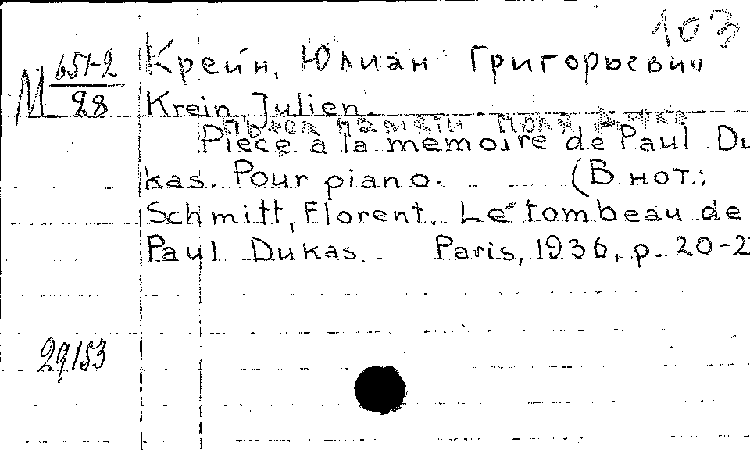 103
М 651-2
28
Крейн, Юлиан Григорьевич
Krein Julien
Пьеса памяти Поля Дюка
Piece à la memoire de Paul Du
kas. Pour piano. (В нот.:
Schmitt, Florent. Le tombeau de
Paul Dukas. Paris, 1936, p. 20-2
29153